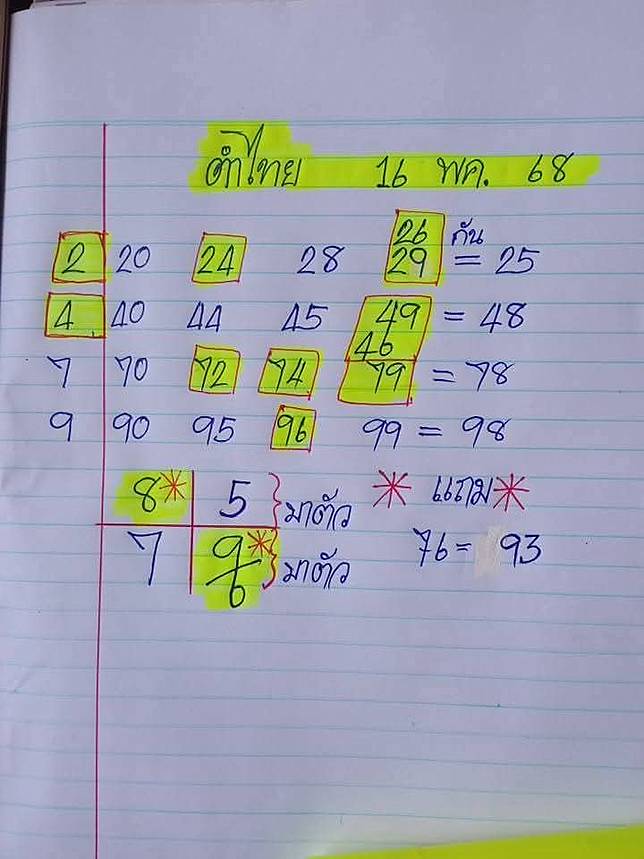 ตำไทย 16 พค. 68
26 กัน
2 20 24 28 29 = 25
4 40 44 45 49 = 48
46
7 70 72 74 79 = 78
9 90 95 96 99 = 98
8* 5 } มาตัว * แถม *
7 9* } มาตัว 76 = 93
6